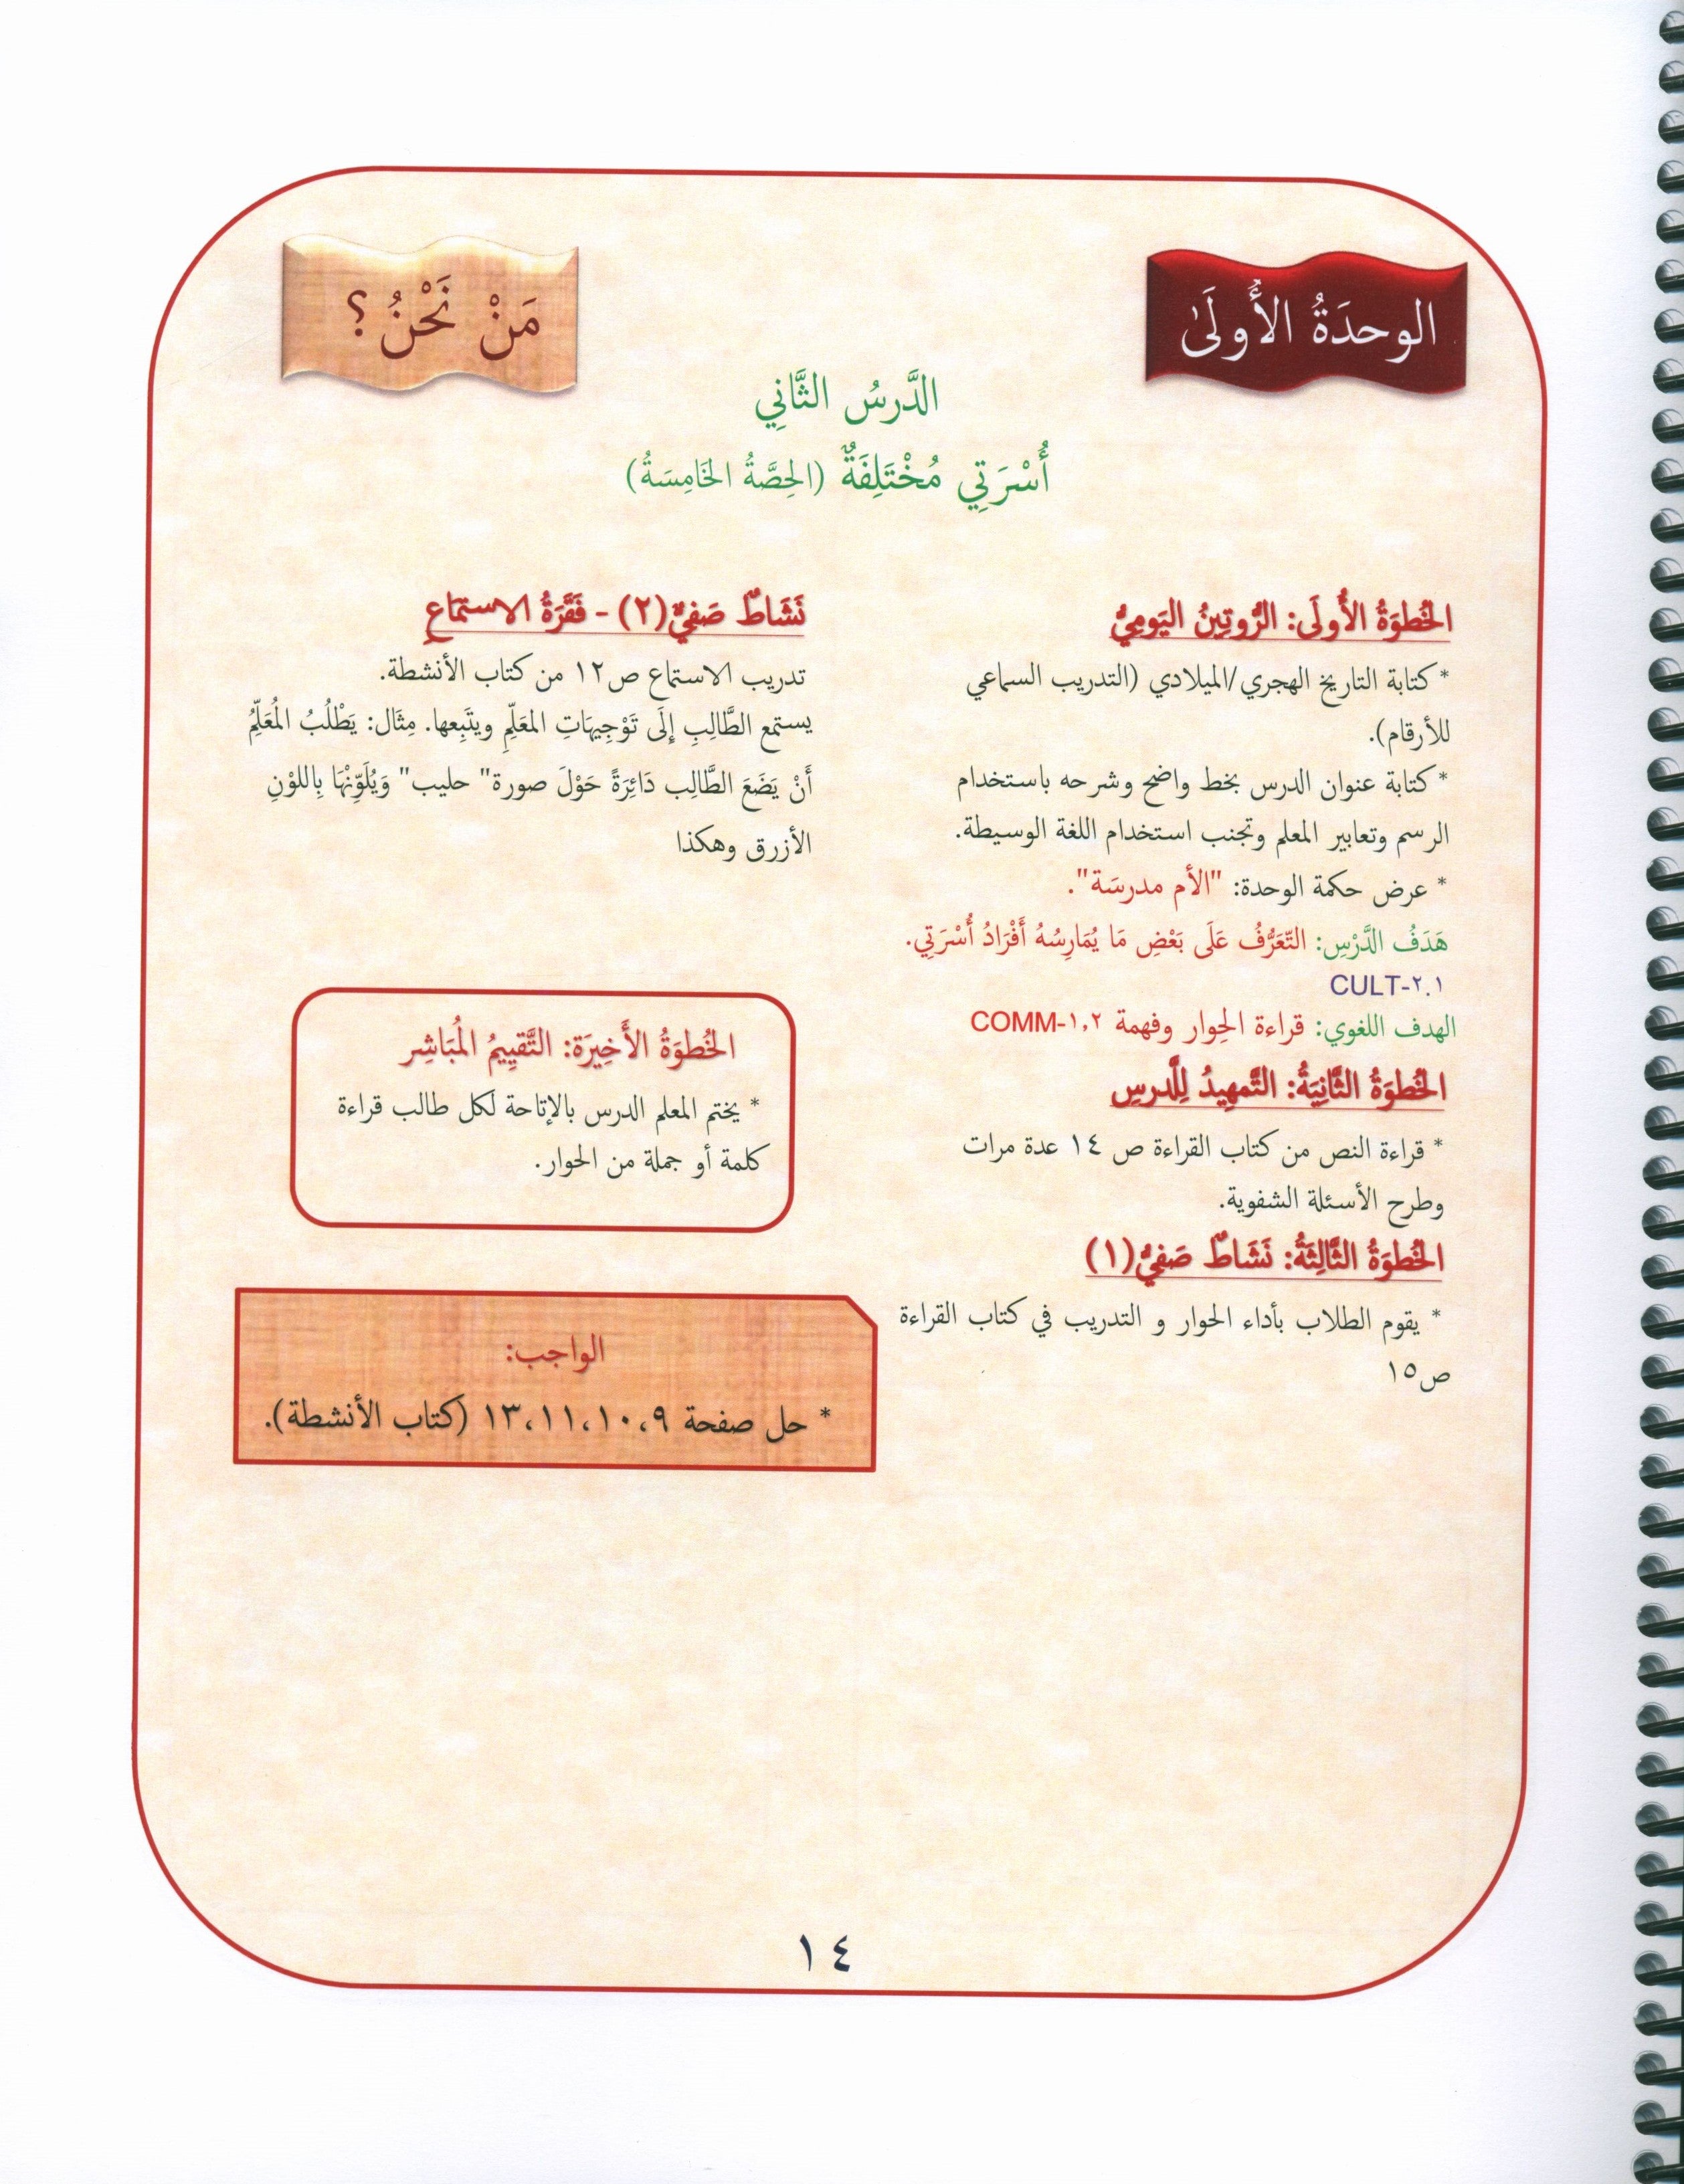 الوحدَةُ الأُولَىٰ
مَنْ نَحْنُ ؟
الدَّرسُ الثَّانِي
أُسْرَتِي مُخْتَلِفَةٌ (الحِصَّةُ الخَامِسَةُ)
الخُطوَةُ الأُولَى: الرُّوتِينُ اليَومِيُّ
* كتابة التاريخ الهجري/الميلادي (التدريب السماعي
للأرقام).
* كتابة عنوان الدرس بخط واضح وشرحه باستخدام
الرسم وتعابير المعلم وتجنب استخدام اللغة الوسيطة.
* عرض حكمة الوحدة: "الأم مدرسَة".
هَدَفُ الدَّرْسِ: التّعَرُّفُ عَلَى بَعْضِ مَا يُمَارِسُهُ أَفْرَادُ أُسْرَتِي.
CULT-٢.١
الهدف اللغوي: قراءة الحِوار وفهمة COMM-١,٢
الخُطوَةُ الثَّانِيَةُ: التَّمهِيدُ لِلَّدرسِ
* قراءة النص من كتاب القراءة ص ١٤ عدة مرات
وطرح الأسئلة الشفوية.
الخُطوَةُ الثَّالِثَةُ: نَشَاطٌ صَفيٌّ(١)
* يقوم الطلاب بأداء الحوار و التدريب في كتاب القراءة
ص١٥
نَشَاطٌ صَفيٌّ(٢) - فَقَرَةُ الاستمَاعِ
تدريب الاستماع ص١٢ من كتاب الأنشطة.
يستمع الطَّالِبِ إِلَى تَوْجِيهَاتِ المعَلِّمِ ويتَبِعها. مِثَال: يَطْلُبُ المُعَلِّمُ
أَنْ يَضَعَ الطَّالِب دَائِرَةً حَوْلَ صورة" حليب" وَيُلَوِّنْهَا بِاللوْنِ
الأزرق وهكذا
الخُطوَةُ الأَخِيرَة: التَّقيِيمُ المُبَاشِر
* يختم المعلم الدرس بالإتاحة لكل طالب قراءة
كلمة أو جملة من الحوار.
الواجب:
* حل صفحة ٩، ١٠، ١١، ١٣ (كتاب الأنشطة).
١٤